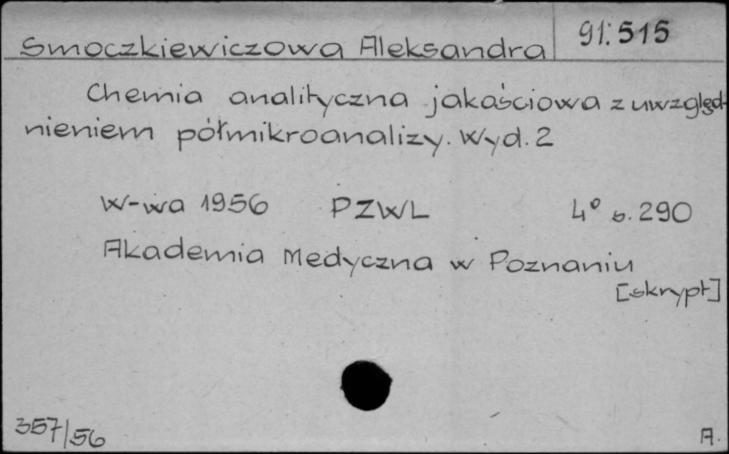 Smoczkiewiczowa Aleksandra 91:515
Chemia analityczna jakościowa z uwzględ-
nieniem półmikroanalizy. Wyd. 2
W-wa 1956 PZWL 4° s. 290
Akademia Medyczna w Poznaniu
[skrypt]
357/56 A.